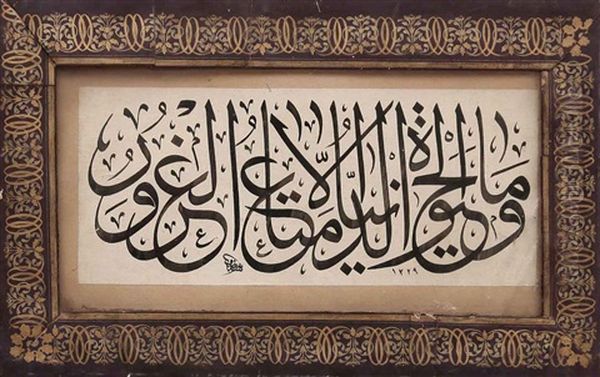 وما الحيوة الدنيا إلا متاع الغرور
١٣٢٩